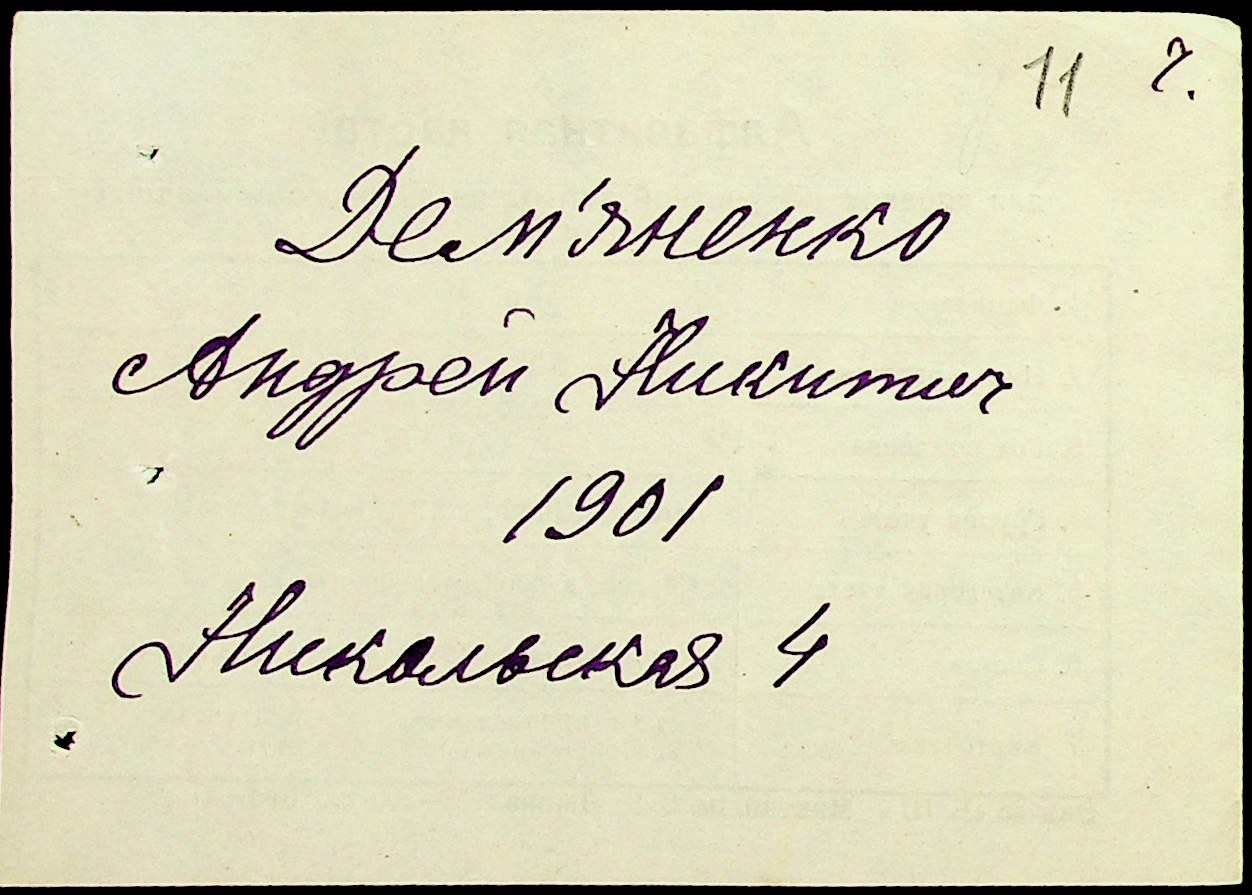 11 ч.
Дем'яненко
Андрей Никитич
1901
Никольская 4